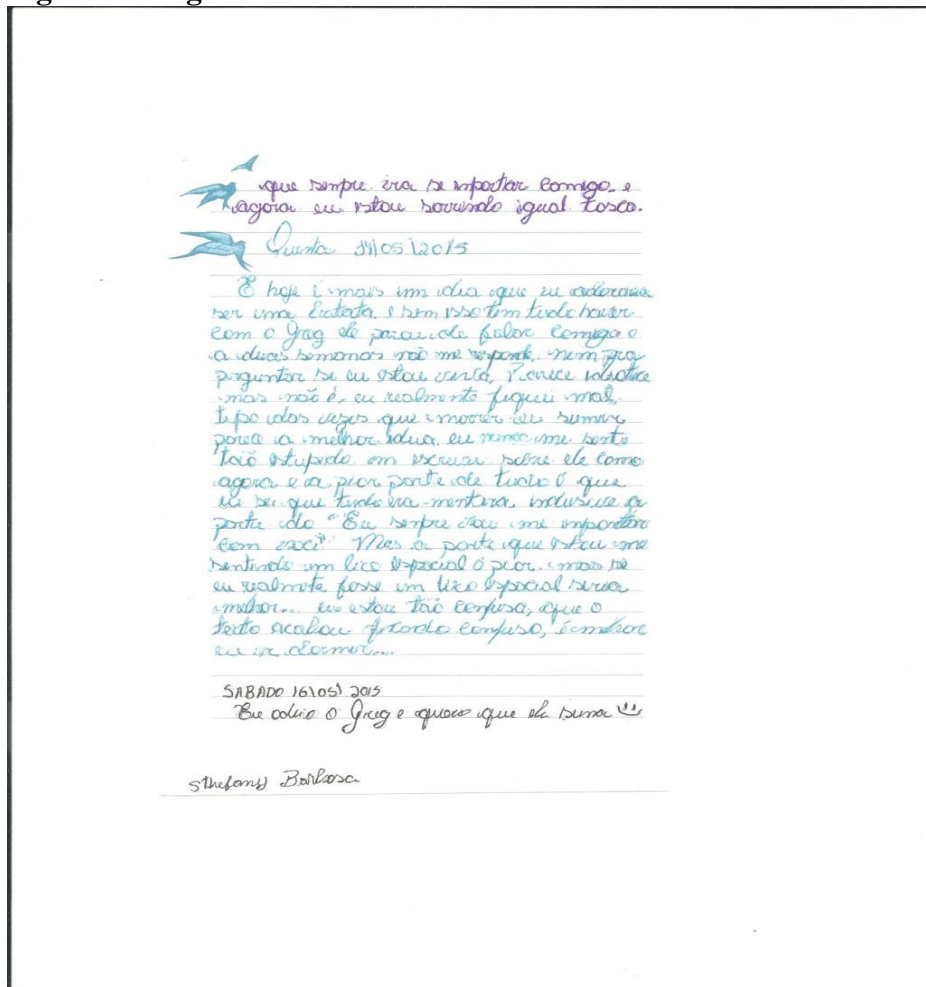 que sempre ira se importar comigo, e
agora eu estou sorrindo igual tosca.
Quinta 14\05\2015
E hoje é mais um dia que eu adoraria
ser uma batata, e sem isso tem tudo haver
com o Greg ele parou de falar comigo e
a duas semanas não me responde, nem pra
perguntar se eu estou viva, Parece idiotice
mas não é, eu realmente fiquei mal,
tipo das vezes que morrer ou sumir
parece a melhor ideia, eu nunca me senti
tão estupida em escrever sobre ele como
agora e a pior parte de tudo é que
eu sei que tudo era mentira, inclusive a
parte do "Eu sempre vou me importar
com você" Mas a parte que estou me
sentindo um lixo espacial é pior, mas se
eu realmente fosse um lixo espacial seria
melhor... eu estou tão confusa, que o
texto acabou ficando confuso, é melhor
eu ir dormir...
SABADO 16\05\2015
Eu odeio o Greg e quero que ele suma
Sthefany Barbosa